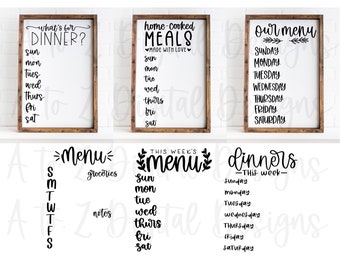 what's for
DINNER?
sun
mon
tues
wed
thurs
fri
sat
home-cooked
MEALS
MADE WITH LOVE
sun
mon
tue
wed
thurs
fri
sat
our menu
SUNDAY
MONDAY
TUESDAY
WEDNESDAY
THURSDAY
FRIDAY
SATURDAY
menu
groceries
S
M
T
W
T
F
S
notes
THIS WEEK'S
menu
sun
mon
tue
wed
thurs
fri
sat
dinners
THIS week
SUNDAY
MONDAY
TUESDAY
WEDNESDAY
THURSDAY
FRIDAY
SATURDAY
A to Z Digital Designs